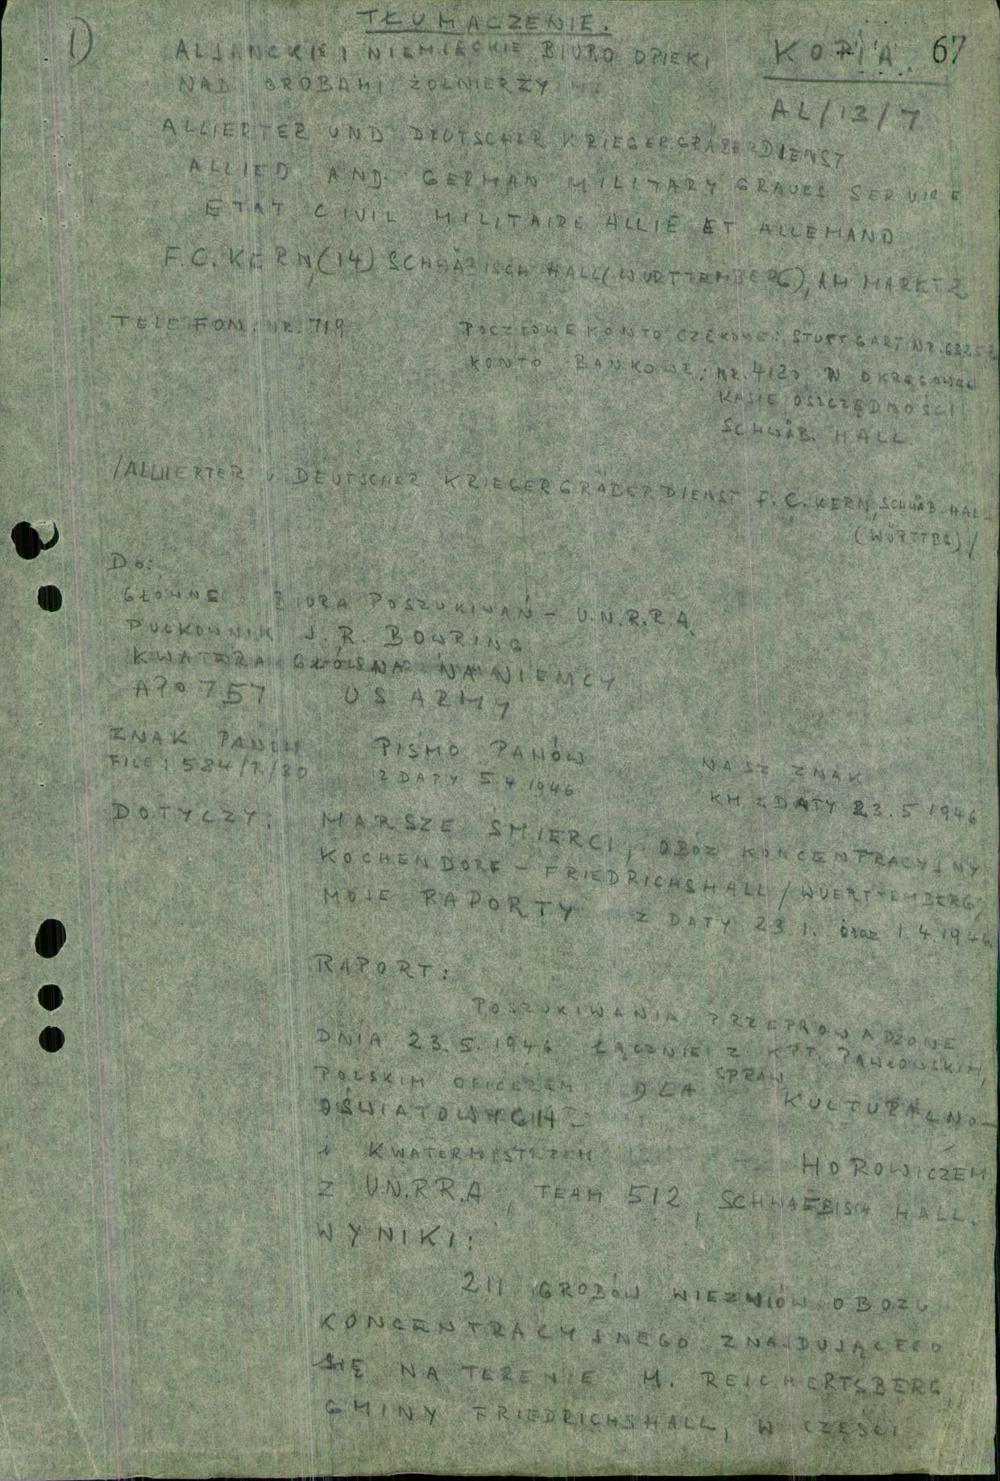 TŁUMACZENIE.
1)
ALJANCKIE I NIEMIECKIE BIURO OPIEKI
KOPIA. 67
NAD GROBAMI ŻOŁNIERZY
AL/13/7
ALLIERTER UND DEUTSCHER KRIEGERGRÄBERDIENST
ALLIED AND GERMAN MILITARY GRAVES SERVICE
ETAT CIVIL MILITAIRE ALLIÉ ET ALLEMAND
F.C. KERN, (14) SCHWÄBISCH HALL (WUERTTEMBERG), AM MARKT 2
TELEFON: NR. 719
POCZTOWE KONTO CZEKOWE: STUTTGART NR.
KONTO BANKOWE: NR. 4120 W OKRĘGOWEJ
KASIE OSZCZĘDNOŚCI
SCHWÄB. HALL.
/ALLIIERTER U. DEUTSCHER KRIEGERGRÄBERDIENST F.C. KERN, SCHWÄB. HAL-
(WÜRTTBG)/
DO:
GŁÓWNE BIURA POSZUKIWAŃ - U.N.R.R.A.
PUŁKOWNIK J. R. BOWRING
KWATERA GŁÓWNA NA NIEMCY
APO 757 US ARMY
ZNAK PANÓW PISMO PANÓW NASZ ZNAK
FILE: 584/ /80 Z DATY 5.4.1946 KM. Z DATY 23.5.1946
DOTYCZY: MARSZE ŚMIERCI, OBÓZ KONCENTRACYJNY
KOCHENDORF - FRIEDRICHSHALL /WUERTTEMBERG/
MOJE RAPORTY Z DATY 23.1. oraz 1.4.1946.
RAPORT:
POSZUKIWANIA PRZEPROWADZONE
DNIA 23.5.1946 ŁĄCZNIE Z KPT. PAWŁOWSKIM,
POLSKIM OFICEREM DLA SPRAW KULTURALNO-
OŚWIATOWYCH -
i KWATERMISTRZEM - HOROWICZEM
Z U.N.R.R.A, TEAM 512, SCHWAEBISCH HALL.
WYNIKI:
211 GROBÓW WIEZNIÓW OBOZU
KONCENTRACYJNEGO ZNAJDUJĄCEGO
SIĘ NA TERENIE M. REICHERTSBERG
GMINY FRIEDRICHSHALL, W CZĘŚCI